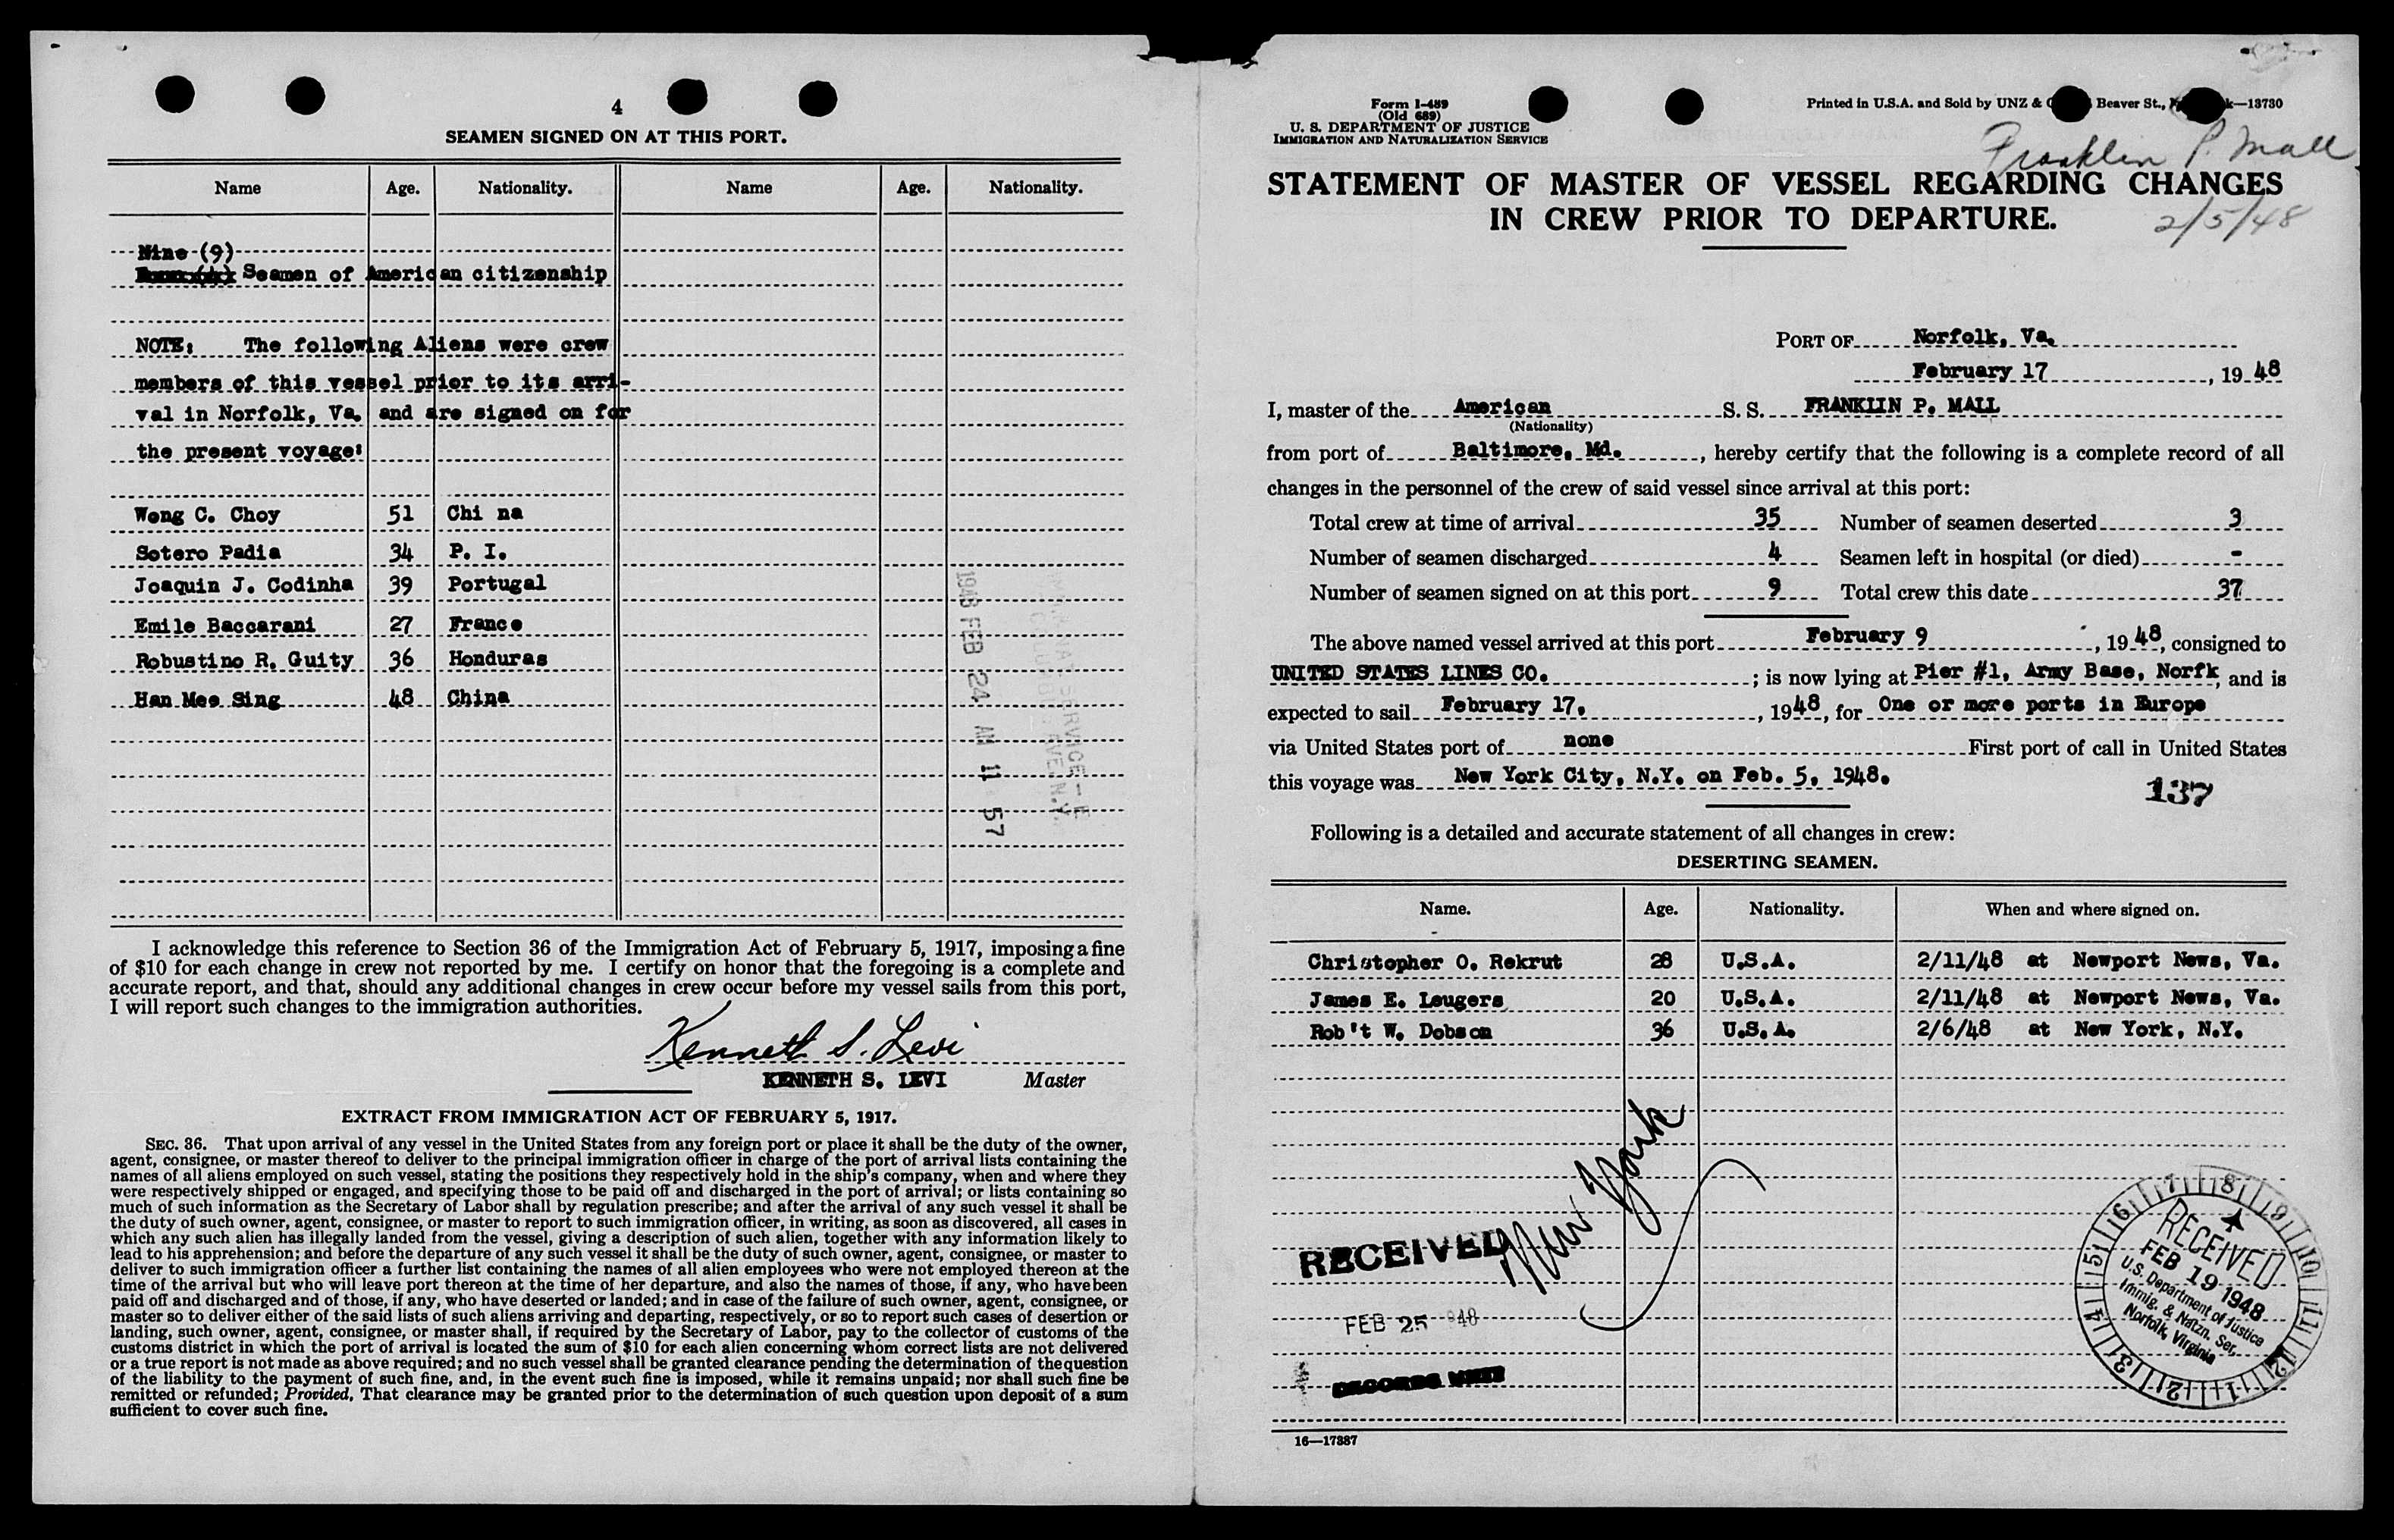 4
SEAMEN SIGNED ON AT THIS PORT.
Name Age. Nationality. Name Age. Nationality.
Nine (9)
Seamen of American citizenship
NOTE: The following Aliens were crew
members of this vessel prior to its arri-
val in Norfolk, Va. and are signed on for
the present voyage:
Wong C. Choy 51 Chi na
Sotero Padia 34 P. I.
Joaquin J. Codinha 39 Portugal
Emile Baccarani 27 France
Robustino R. Guity 36 Honduras
Han Mee Sing 48 China
1948 FEB 24 AM 11 57
I acknowledge this reference to Section 36 of the Immigration Act of February 5, 1917, imposing a fine
of $10 for each change in crew not reported by me. I certify on honor that the foregoing is a complete and
accurate report, and that, should any additional changes in crew occur before my vessel sails from this port,
I will report such changes to the immigration authorities.
Kenneth S. Levi
KENNETH S. LEVI Master
EXTRACT FROM IMMIGRATION ACT OF FEBRUARY 5, 1917.
SEC. 36. That upon arrival of any vessel in the United States from any foreign port or place it shall be the duty of the owner,
agent, consignee, or master thereof to deliver to the principal immigration officer in charge of the port of arrival lists containing the
names of all aliens employed on such vessel, stating the positions they respectively hold in the ship's company, when and where they
were respectively shipped or engaged, and specifying those to be paid off and discharged in the port of arrival; or lists containing so
much of such information as the Secretary of Labor shall by regulation prescribe; and after the arrival of any such vessel it shall be
the duty of such owner, agent, consignee, or master to report to such immigration officer, in writing, as soon as discovered, all cases in
which any such alien has illegally landed from the vessel, giving a description of such alien, together with any information likely to
lead to his apprehension; and before the departure of any such vessel it shall be the duty of such owner, agent, consignee, or master to
deliver to such immigration officer a further list containing the names of all alien employees who were not employed thereon at the
time of the arrival but who will leave port thereon at the time of her departure, and also the names of those, if any, who have been
paid off and discharged and of those, if any, who have deserted or landed; and in case of the failure of such owner, agent, consignee, or
master so to deliver either of the said lists of such aliens arriving and departing, respectively, or so to report such cases of desertion or
landing, such owner, agent, consignee, or master shall, if required by the Secretary of Labor, pay to the collector of customs of the
customs district in which the port of arrival is located the sum of $10 for each alien concerning whom correct lists are not delivered
or a true report is not made as above required; and no such vessel shall be granted clearance pending the determination of the question
of the liability to the payment of such fine, and, in the event such fine is imposed, while it remains unpaid; nor shall such fine be
remitted or refunded; Provided, That clearance may be granted prior to the determination of such question upon deposit of a sum
sufficient to cover such fine.
Form I-489
(Old 689)
U. S. DEPARTMENT OF JUSTICE
IMMIGRATION AND NATURALIZATION SERVICE
Printed in U.S.A. and Sold by UNZ & Beaver St., —13730
Franklin P. Mall
STATEMENT OF MASTER OF VESSEL REGARDING CHANGES
IN CREW PRIOR TO DEPARTURE.
2/5/48
PORT OF Norfolk, Va.
February 17, 1948
I, master of the American S. S. FRANKLIN P. MALL
(Nationality)
from port of Baltimore, Md., hereby certify that the following is a complete record of all
changes in the personnel of the crew of said vessel since arrival at this port:
Total crew at time of arrival 35 Number of seamen deserted 3
Number of seamen discharged 4 Seamen left in hospital (or died) -
Number of seamen signed on at this port 9 Total crew this date 37
The above named vessel arrived at this port February 9, 1948, consigned to
UNITED STATES LINES CO. ; is now lying at Pier #1, Army Base, Norfk, and is
expected to sail February 17, , 1948, for One or more ports in Europe
via United States port of none First port of call in United States
this voyage was New York City, N.Y. on Feb. 5, 1948.
137
Following is a detailed and accurate statement of all changes in crew:
DESERTING SEAMEN.
Name. Age. Nationality. When and where signed on.
Christopher O. Rekrut 28 U.S.A. 2/11/48 at Newport News, Va.
James E. Leugers 20 U.S.A. 2/11/48 at Newport News, Va.
Rob't W. Dobson 36 U.S.A. 2/6/48 at New York, N.Y.
New York
RECEIVED
FEB 25 948
RECORDS UNIT
7 8 9 10 11 12 1 2 3 4 5 6
RECEIVED
FEB 19 1948
U.S. Department of Justice
Immig. & Natzn. Ser.
Norfolk, Virginia
16—17387